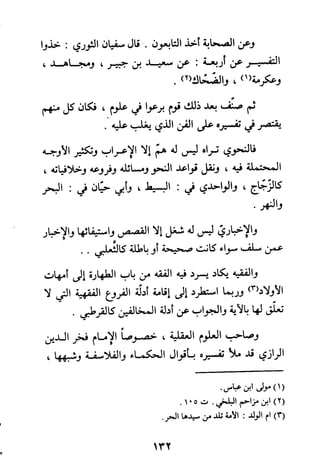 وعن الصحابة أخذ التابعون . قال سفيان الثوري : خذوا
التفسير عن أربعة : عن سعيد بن جبير ، ومجاهد ،
وعكرمة(١) ، والضحّاك(٢) .
ثم صنّف بعد ذلك قوم برعوا في علوم ، فكان كل منهم
يقتصر في تفسيره على الفن الذي يغلب عليه .
فالنحوي تراه ليس له همّ إلا الإعراب وتكثير الأوجه
المحتملة فيه ، ونقل قواعد النحو ومسائله وفروعه وخلافياته ،
كالزجّاج ، والواحدي في : البسيط ، وأبي حيّان في : البحر
والنهر .
والإخباريّ ليس له شغل إلا القصص واستيفائها والإخبار
عمن سلف سواء كانت صحيحة أو باطلة كالثعلبي . .
والفقيه يكاد يسرد فيه الفقه من باب الطهارة إلى أمهات
الأولاد(٣) وربما استطرد إلى إقامة أدلّة الفروع الفقهية التي لا
تعلّق لها بالآية والجواب عن أدلة المخالفين كالقرطبي .
وصاحب العلوم العقلية ، خصوصاً الإمام فخر الدين
الرازي قد ملأ تفسيره بأقوال الحكماء والفلاسفة وشبهها ،
(١) مولى ابن عباس .
(٢) ابن مزاحم البلخي . ت ١٠٥ .
(٣) ام الولد : الأمة تلد من سيدها الحر .
١٣٢